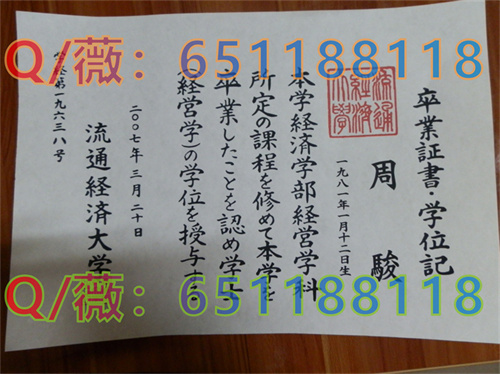 Q/薇：651188118
卒業証書・学位記
周 駿
一九八一年一月十二日生
本学経済学部経営学科
所定の課程を修めて本学を
卒業したことを認め学士
（経営学）の学位を授与する
二〇〇七年三月二十日
流通経済大学
第一九六三八号
流通
経済
大學
Q/薇：651188118